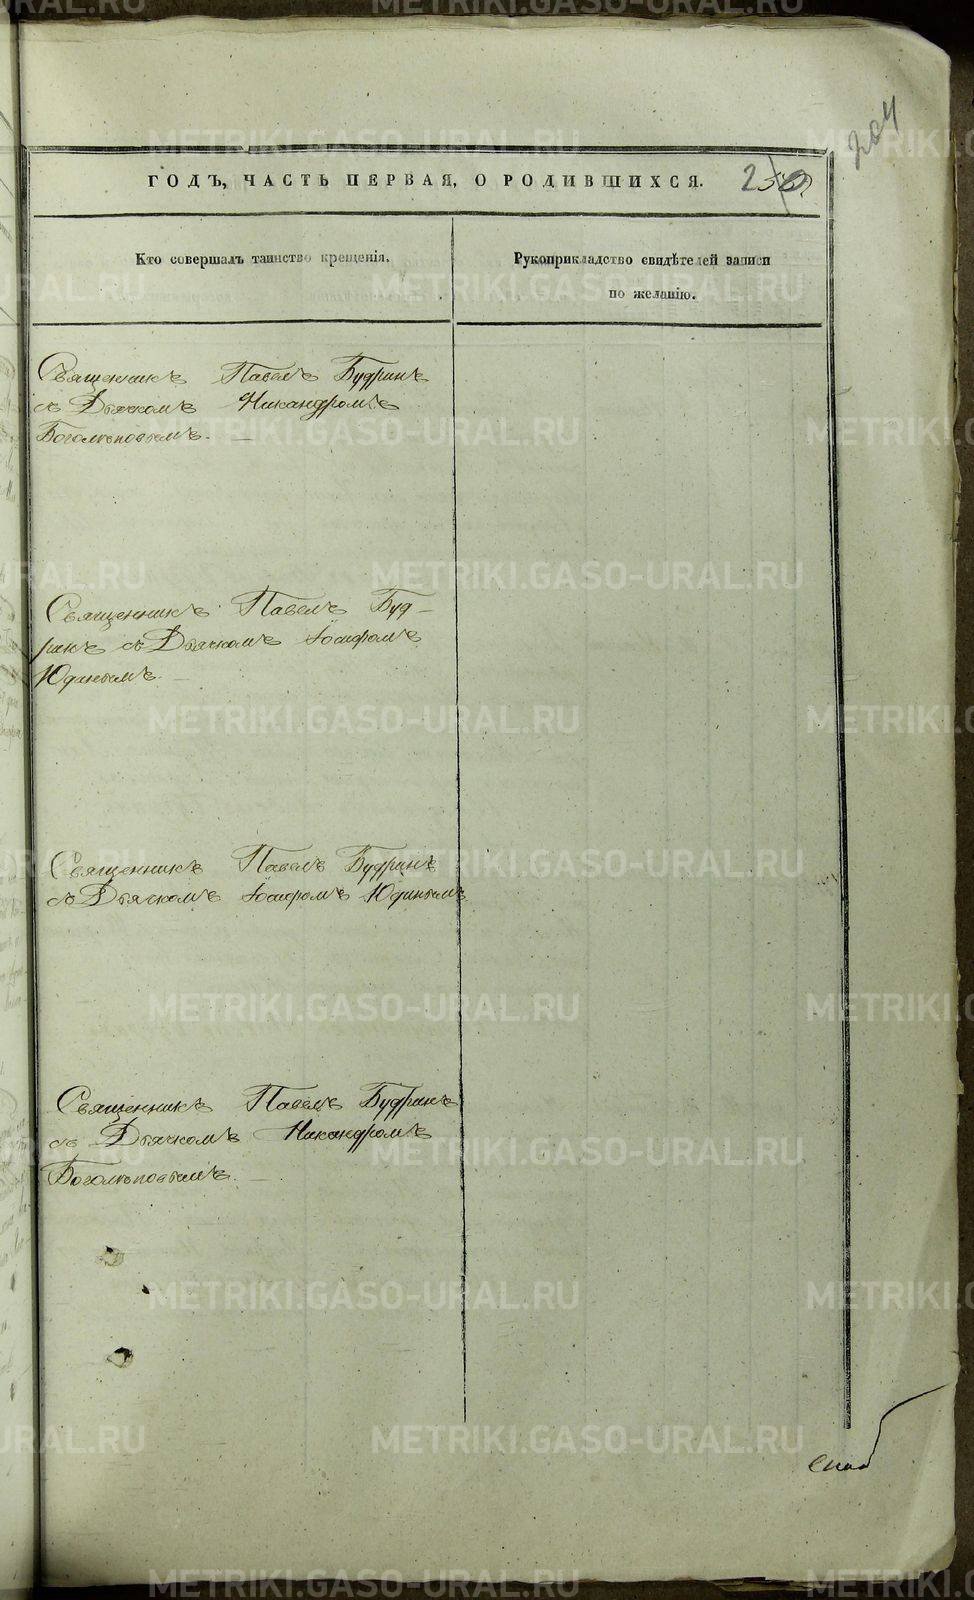 204
ГОДЪ, ЧАСТЬ ПЕРВАЯ, О РОДИВШИХСЯ.
Кто совершалъ таинство крещенія.
Рукоприкладство свидѣтелей записи
по желанію.
Священникъ Павелъ Будринъ
съ Дьячкомъ Никандромъ
Боголѣповымъ. —
Священникъ Павелъ Буд-
ринъ съ Дьячкомъ Іосифомъ
Юдинымъ. —
Священникъ Павелъ Будринъ
съ Дьячкомъ Іосифомъ Юдинымъ
Священникъ Павелъ Будринъ
съ Дьячкомъ Никандромъ
Боголѣповымъ. —
METRIKI.GASO-URAL.RU